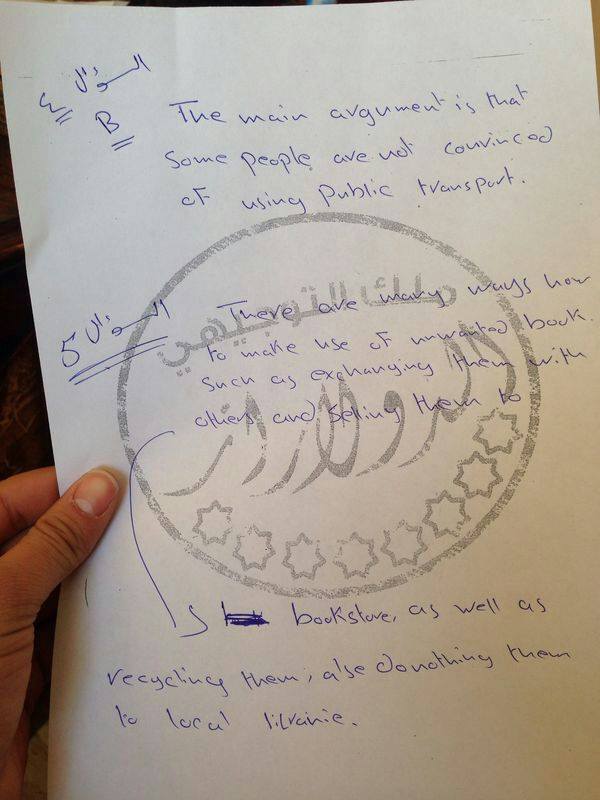 السؤال
B
The main argument is that
some people are not convinced
of using public transport.
السؤال 5
There are many ways how
to make use of unwanted book.
such as exchanging them with
others and selling them to
bookstore, as well as
recycling them, also donothing them
to local libranie.
ملك التوجيهي